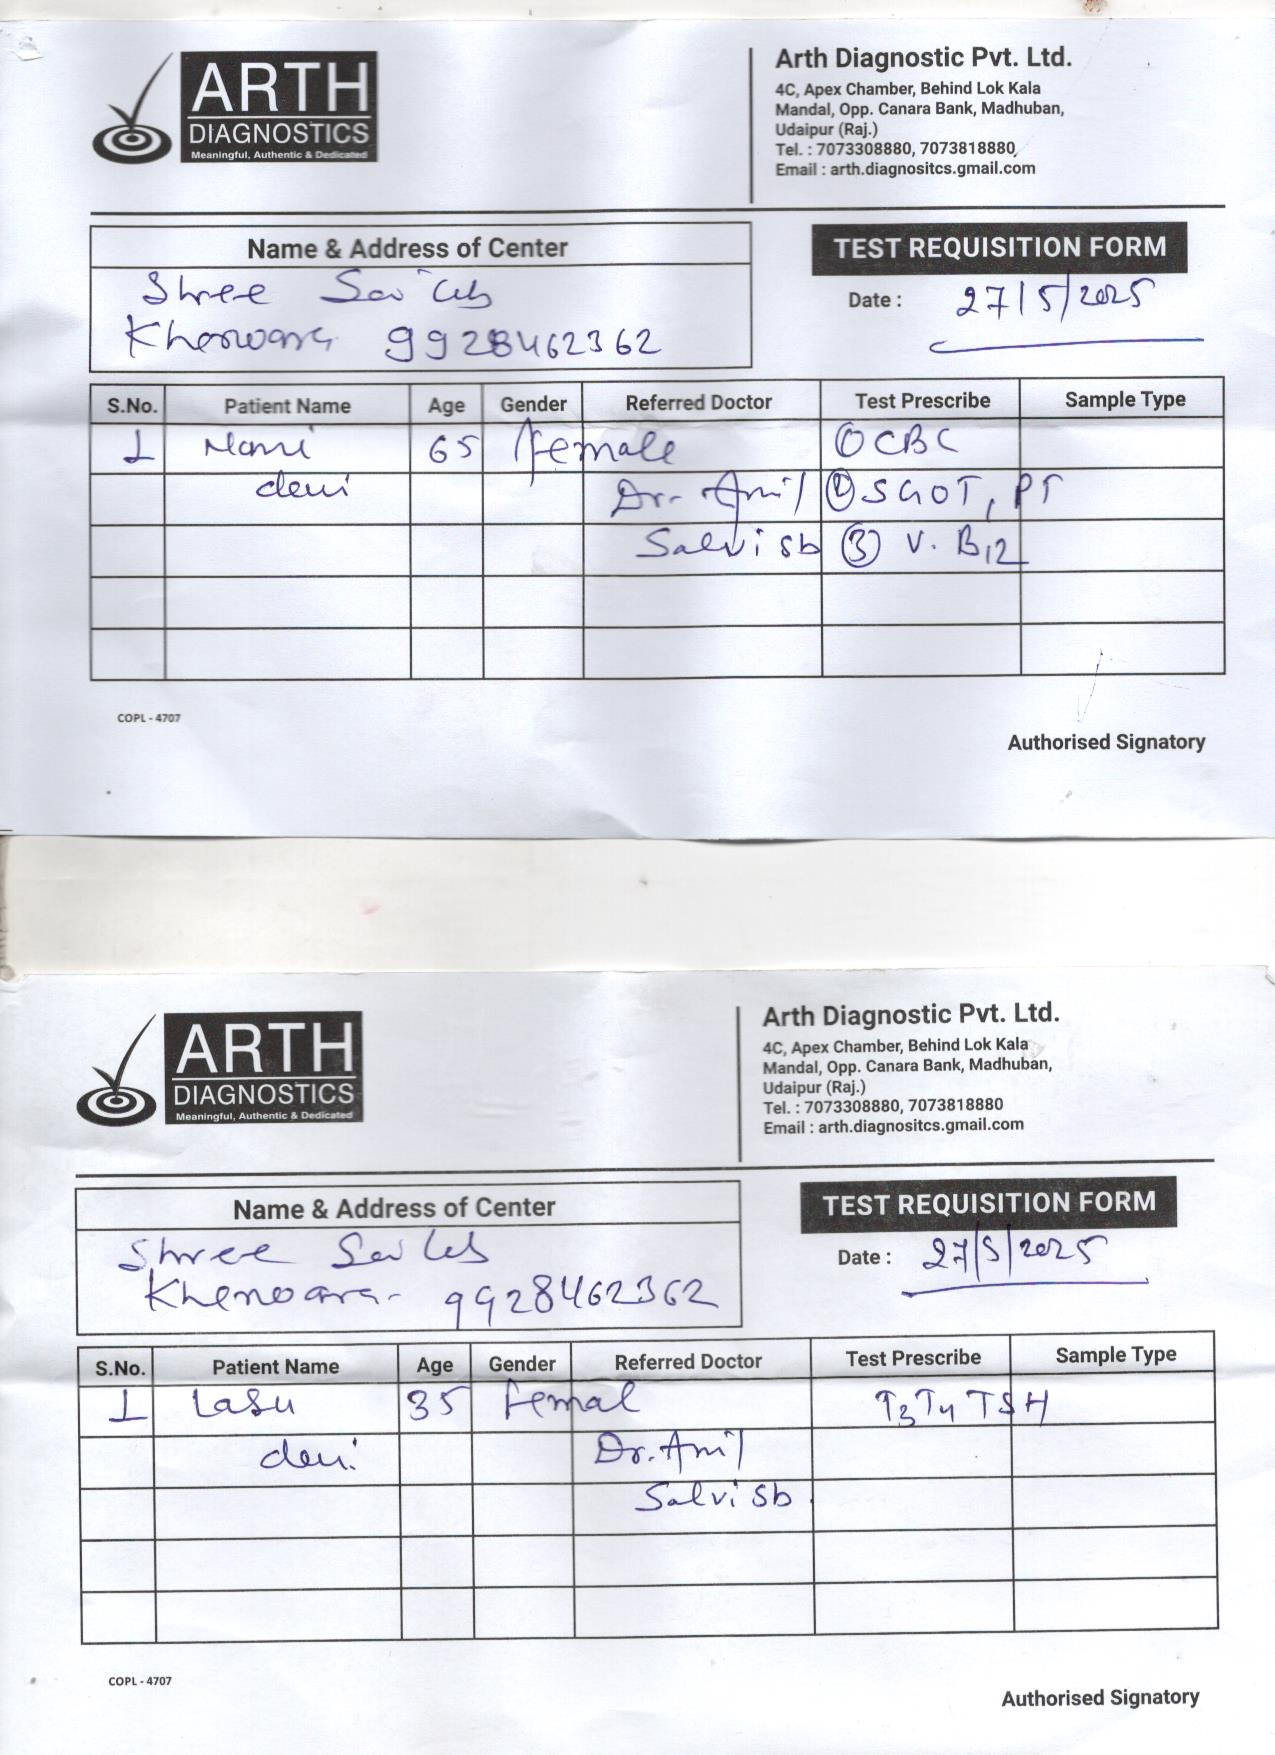 ARTH
DIAGNOSTICS
Meaningful, Authentic & Dedicated
Arth Diagnostic Pvt. Ltd.
4C, Apex Chamber, Behind Lok Kala
Mandal, Opp. Canara Bank, Madhuban,
Udaipur (Raj.)
Tel. : 7073308880, 7073818880
Email : arth.diagnositcs.gmail.com
Name & Address of Center
Shree Sai
Kherwara 9928462362
TEST REQUISITION FORM
Date : 27/5/2025
S.No. Patient Name Age Gender Referred Doctor Test Prescribe Sample Type
1 65 female ① CBC
devi Dr. Anil ② SGOT, PT
Salvi sb ③ V. B12
COPL - 4707
Authorised Signatory
ARTH
DIAGNOSTICS
Meaningful, Authentic & Dedicated
Arth Diagnostic Pvt. Ltd.
4C, Apex Chamber, Behind Lok Kala
Mandal, Opp. Canara Bank, Madhuban,
Udaipur (Raj.)
Tel. : 7073308880, 7073818880
Email : arth.diagnositcs.gmail.com
Name & Address of Center
Shree Sai
Kherwara - 9928462362
TEST REQUISITION FORM
Date : 27/5/2025
S.No. Patient Name Age Gender Referred Doctor Test Prescribe Sample Type
1 Lasu 35 Femal T3 T4 TSH
devi Dr. Anil
Salvi sb
COPL - 4707
Authorised Signatory